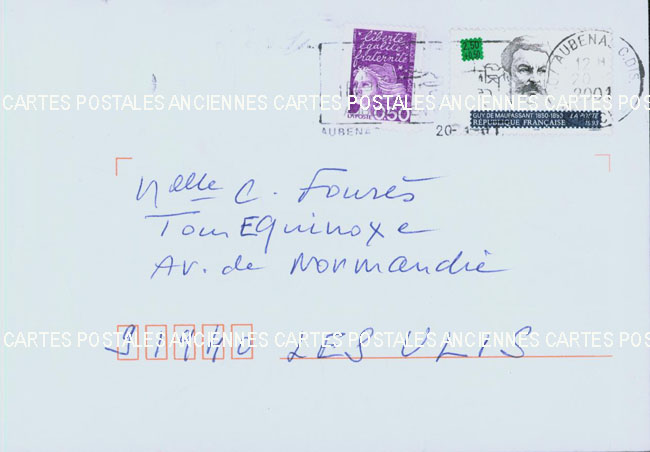 liberté
égalité
fraternité
LA POSTE
0,50
2,50
+0,50
GUY DE MAUPASSANT 1850-1893
RÉPUBLIQUE FRANÇAISE
AUBENAS C.DIS
12 H
20
2001
AUBENAS
20-
CARTES POSTALES ANCIENNES CARTES POSTALES ANCIENNES CARTES POSTALES
Melle C. Fourès
Tour EQuinoxe
Av. de Normandie
91940 LES ULIS
CARTES POSTALES ANCIENNES CARTES POSTALES ANCIENNES CARTES POSTALES